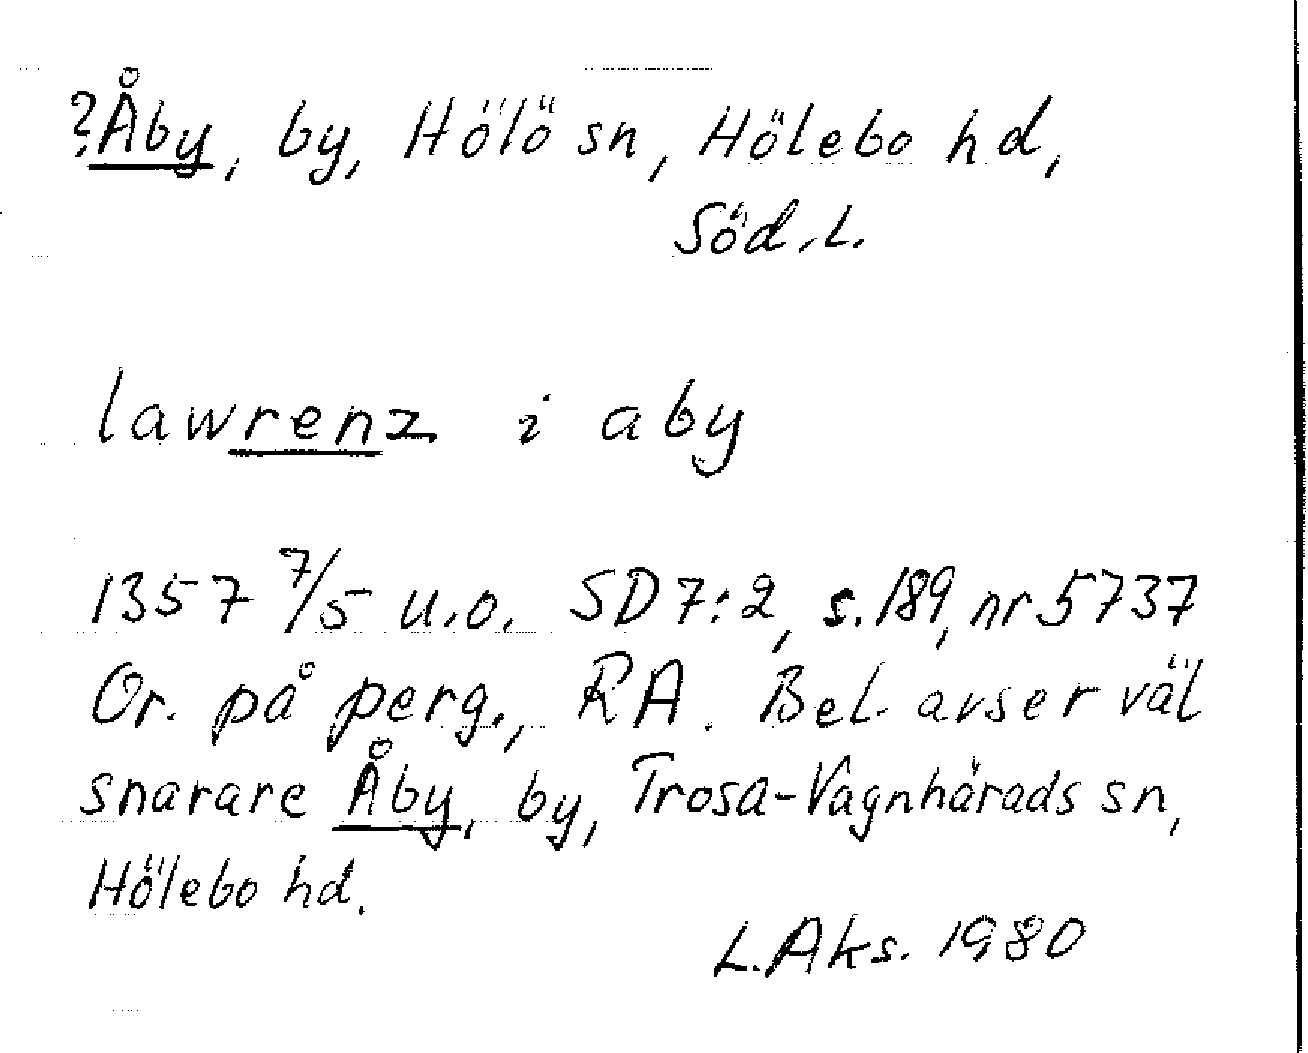 ?Åby, by, Hölö sn, Hölebo hd,
Söd.L.
lawrenz i aby
1357 7/5 u.o. SD 7:2, s.189, nr 5737
Or. på perg., RA. Bel. avser väl
snarare Åby, by, Trosa-Vagnhärads sn,
Hölebo hd.
L.Aks. 1980